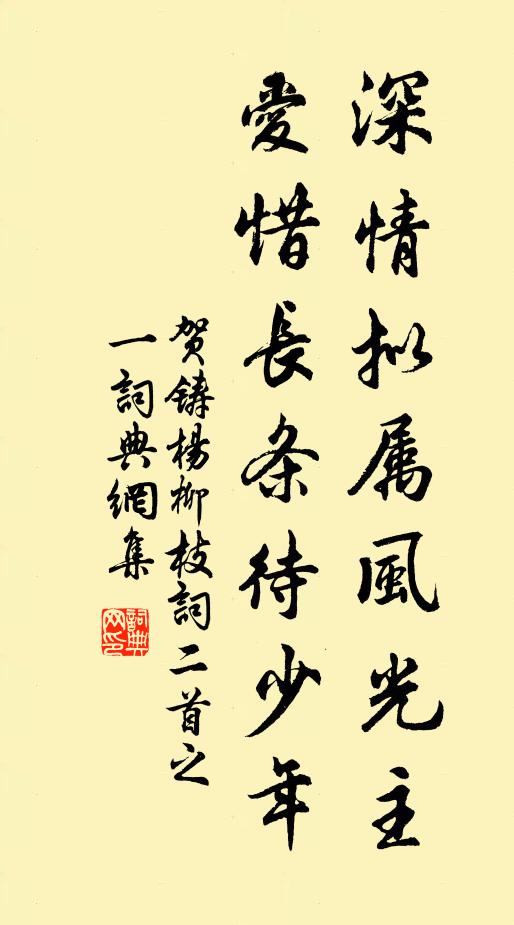 深情拟属風光主
愛惜長条待少年
贺鑄楊柳枝詞二首之
一詞典網集
詞典
网印